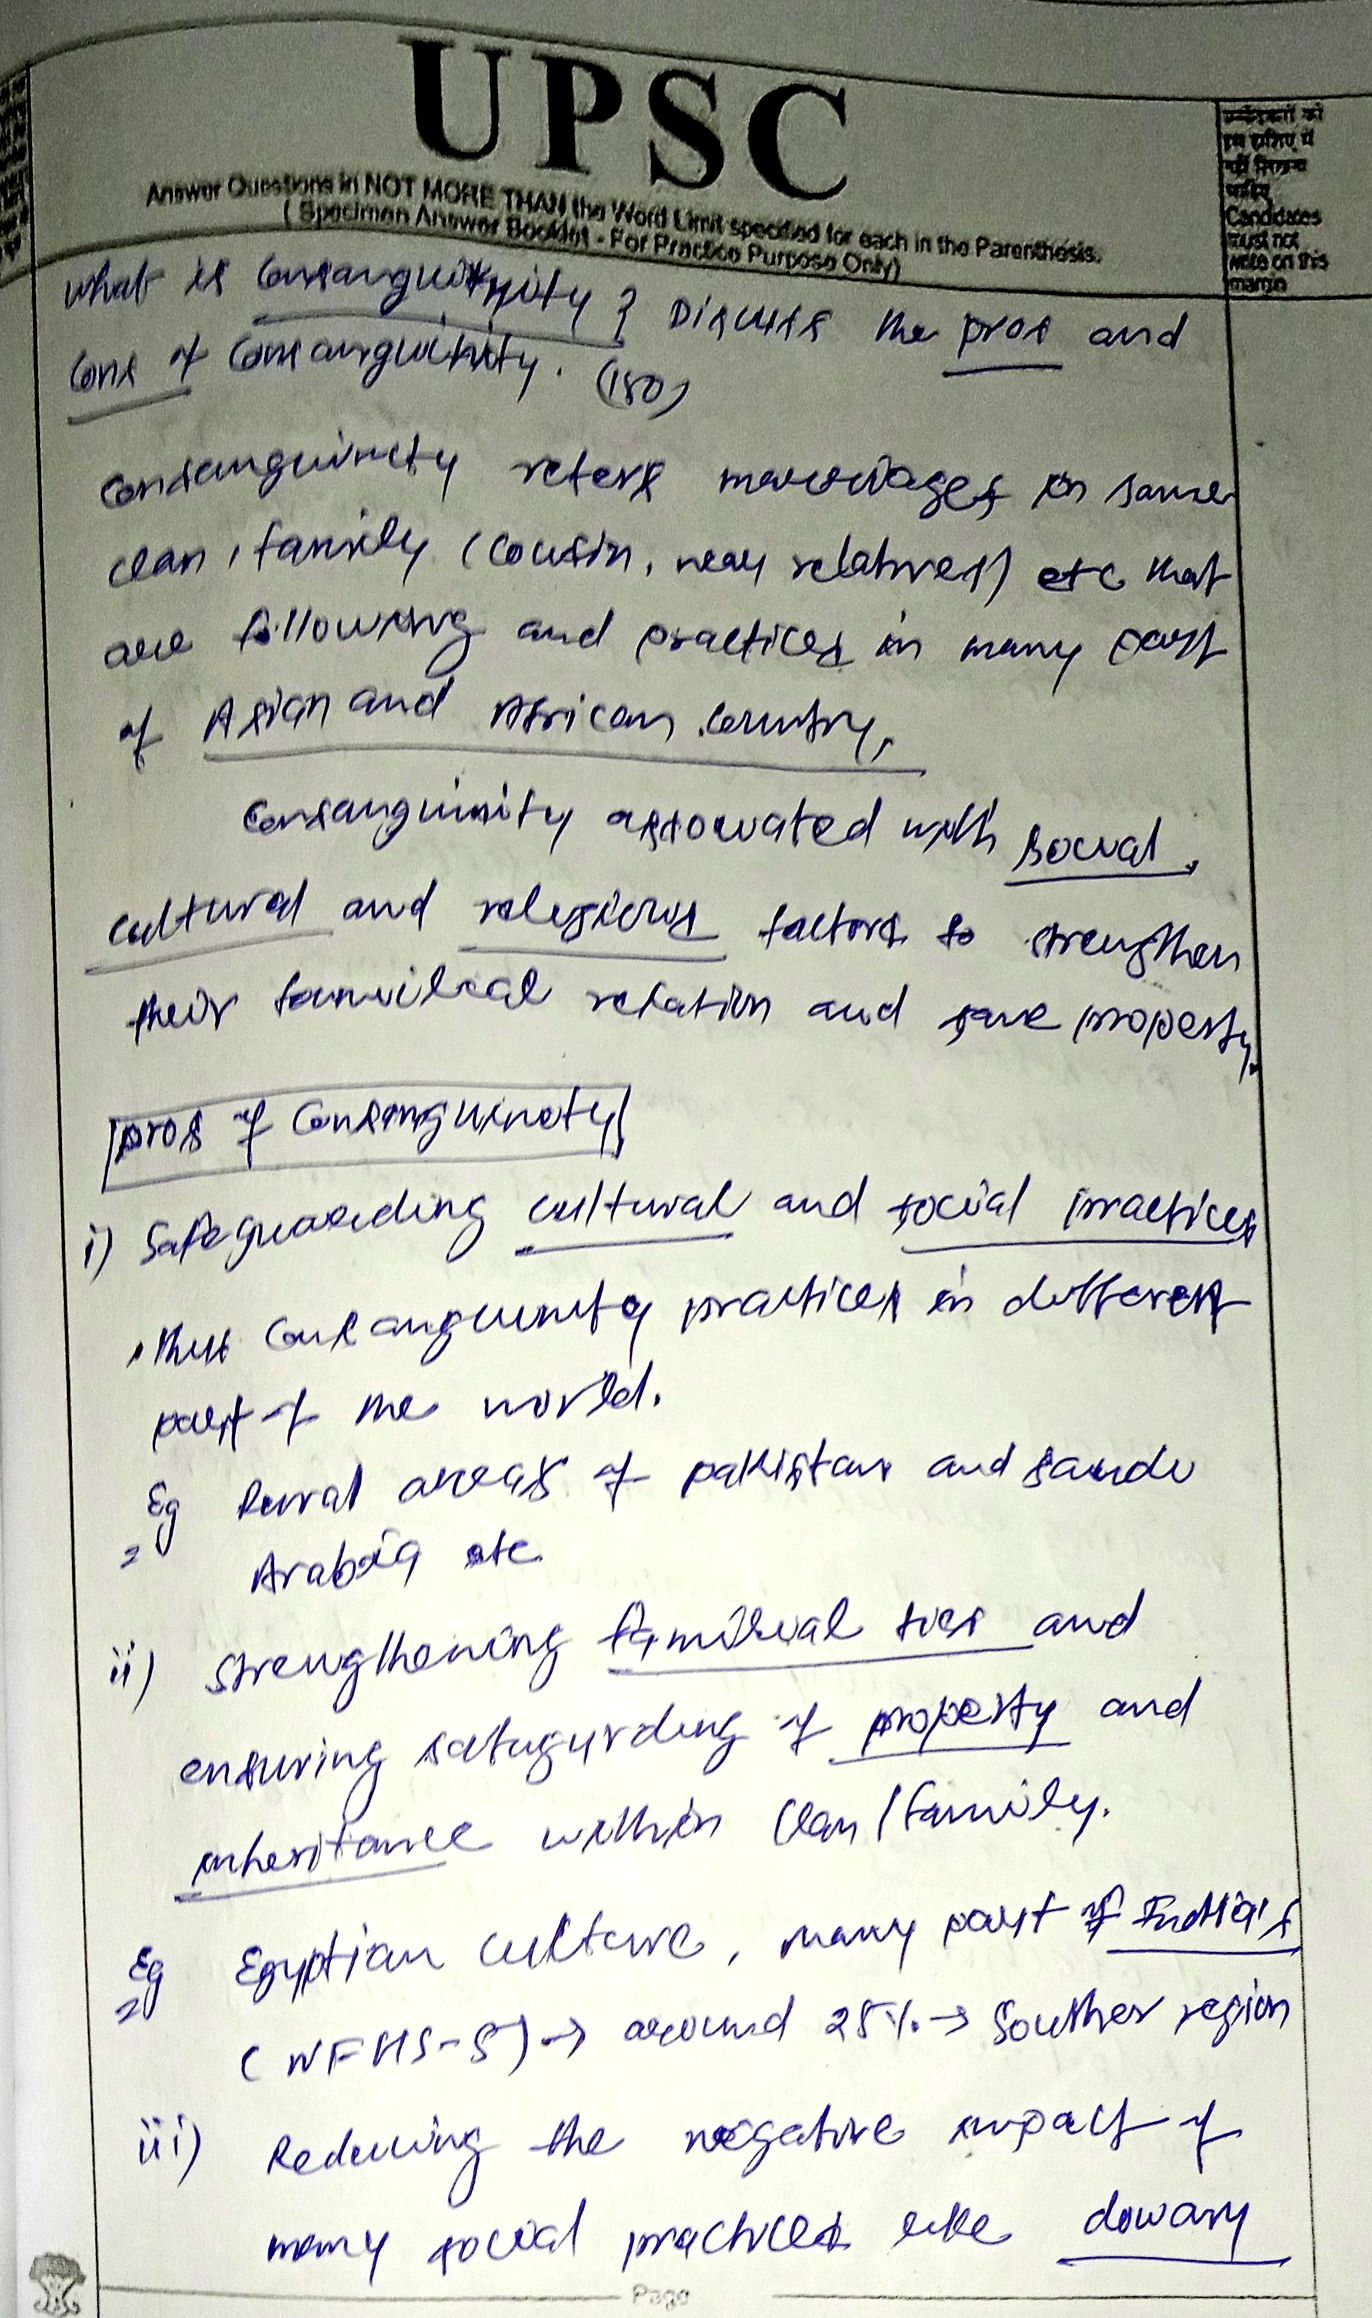 UPSC
Answer Questions in NOT MORE THAN the Word Limit specified for each in the Parenthesis.
( Specimen Answer Booklet - For Practice Purpose Only)
उम्मीदवारों को
इस हाशिए में
नहीं लिखना
चाहिए
Candidates
must not
write on this
margin
What is Consanguinity ? Discuss the pros and
Cons of Consanguinity. (150)
Consanguinity refers marriages in same
clan, family (cousin, near relatives) etc that
are following and practices in many part
of Asian and African country,
Consanguinity associated with social,
cultural and religious factors to strengthen
their familical relation and save property.
pros of Consanguinety
i) Safeguarding cultural and social practices
, thus consanguinity practices in different
part of the world.
Eg Rural areas of pakistan and saudi
Arabia etc
ii) strengthening familial ties and
ensuring safugurding of property and
inheritance within clan / family.
Eg Egyptian culture, many part of India's
( NFHS-5) → around 25% → Souther region
iii) Reducing the negative impact of
many social practices like dowary
Page